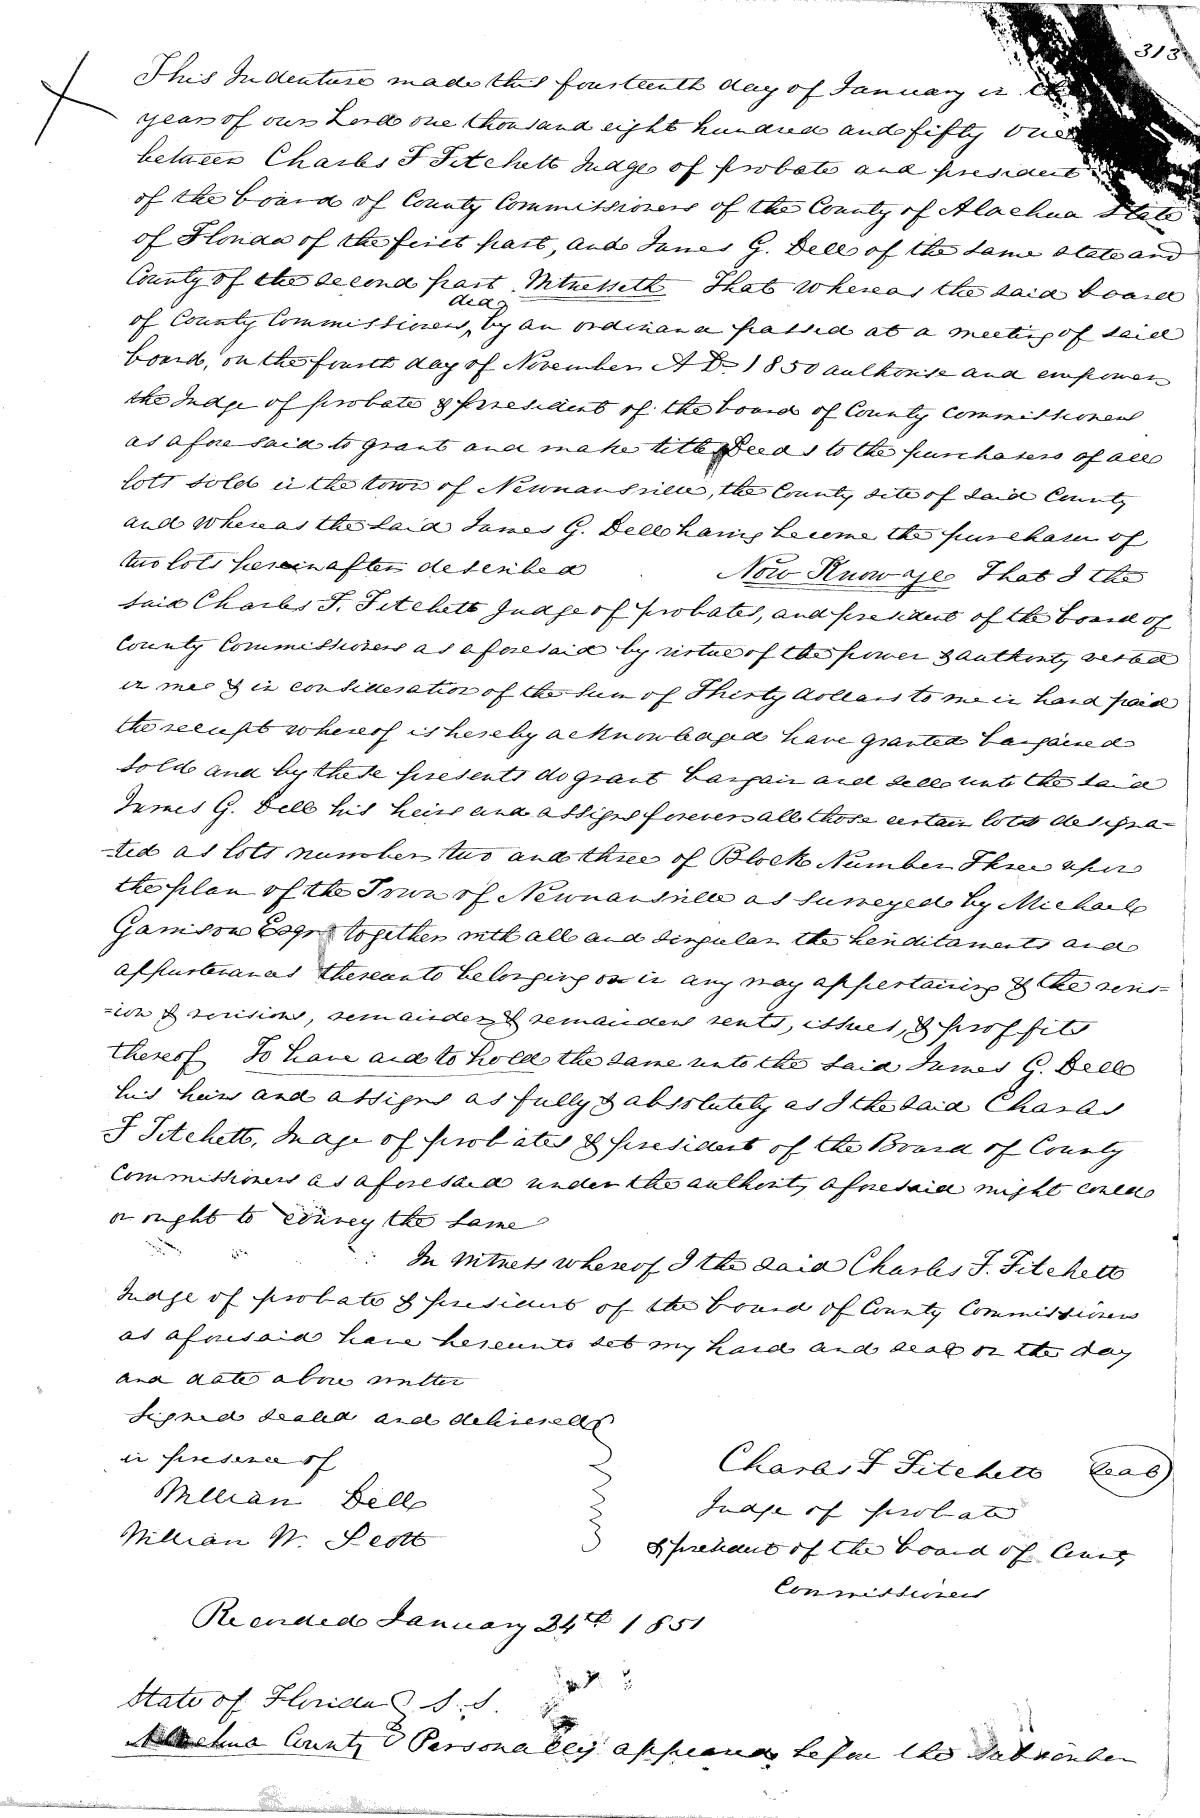 313
This Indenture made this fourteenth day of January in the
year of our Lord one thousand eight hundred and fifty one
between Charles F Fitchett Judge of probate and president
of the board of County Commissioners of the County of Alachua State
of Florida of the first part, and James G. Dell of the same state and
County of the second part. Witnesseth That whereas the said board
did
of County Commissioners, by an ordinance passed at a meeting of said
board, on the fourth day of November A D. 1850 authorise and empower
the Judge of probate & president of the board of County Commissioners
as afore said to grant and make title Deeds to the purchasers of all
lots sold in the town of Newnansville, the County site of said County
and whereas the said James G. Dell having become the purchaser of
two lots hereinafter described Now Know ye That I the
said Charles F. Fitchett Judge of probates, and president of the board of
County Commissioners as aforesaid by virtue of the power & authority vested
in me & in consideration of the sum of Thirty dollars to me in hand paid
the receipt whereof is hereby acknowledged have granted bargained
sold and by these presents do grant bargain and sell unto the said
James G. Dell his heirs and assigns forever all those certain lots designa-
-ted as lots number two and three of Block Number Three upon
the plan of the Town of Newnansville as surveyed by Michael
Garrison Esqr together with all and singular the heriditaments and
appurtenances thereunto belonging or in any way appertaining & the revis=
=ion & revisions, remainder & remainders rents, issues, & proffits
thereof To have and to hold the same unto the said James G. Dell
his heirs and assigns as fully & absolutely as I the said Charles
F Fitchett, Judge of probates & president of the Board of County
Commissioners as aforesaid under the authority aforesaid might could
or ought to convey the same
In witness whereof I the said Charles F. Fitchett
Judge of probate & president of the board of County Commissioners
as aforesaid have hereunto set my hand and seal on the day
and date above written
Signed sealed and delivered
in presence of
Charles F Fitchett Seal
William Dell
Judge of probate
William W. Scott
& president of the board of County
Commissioners
Recorded January 24th 1851
State of Florida S. S.
Alachua County Personally appeared before the Subscriber